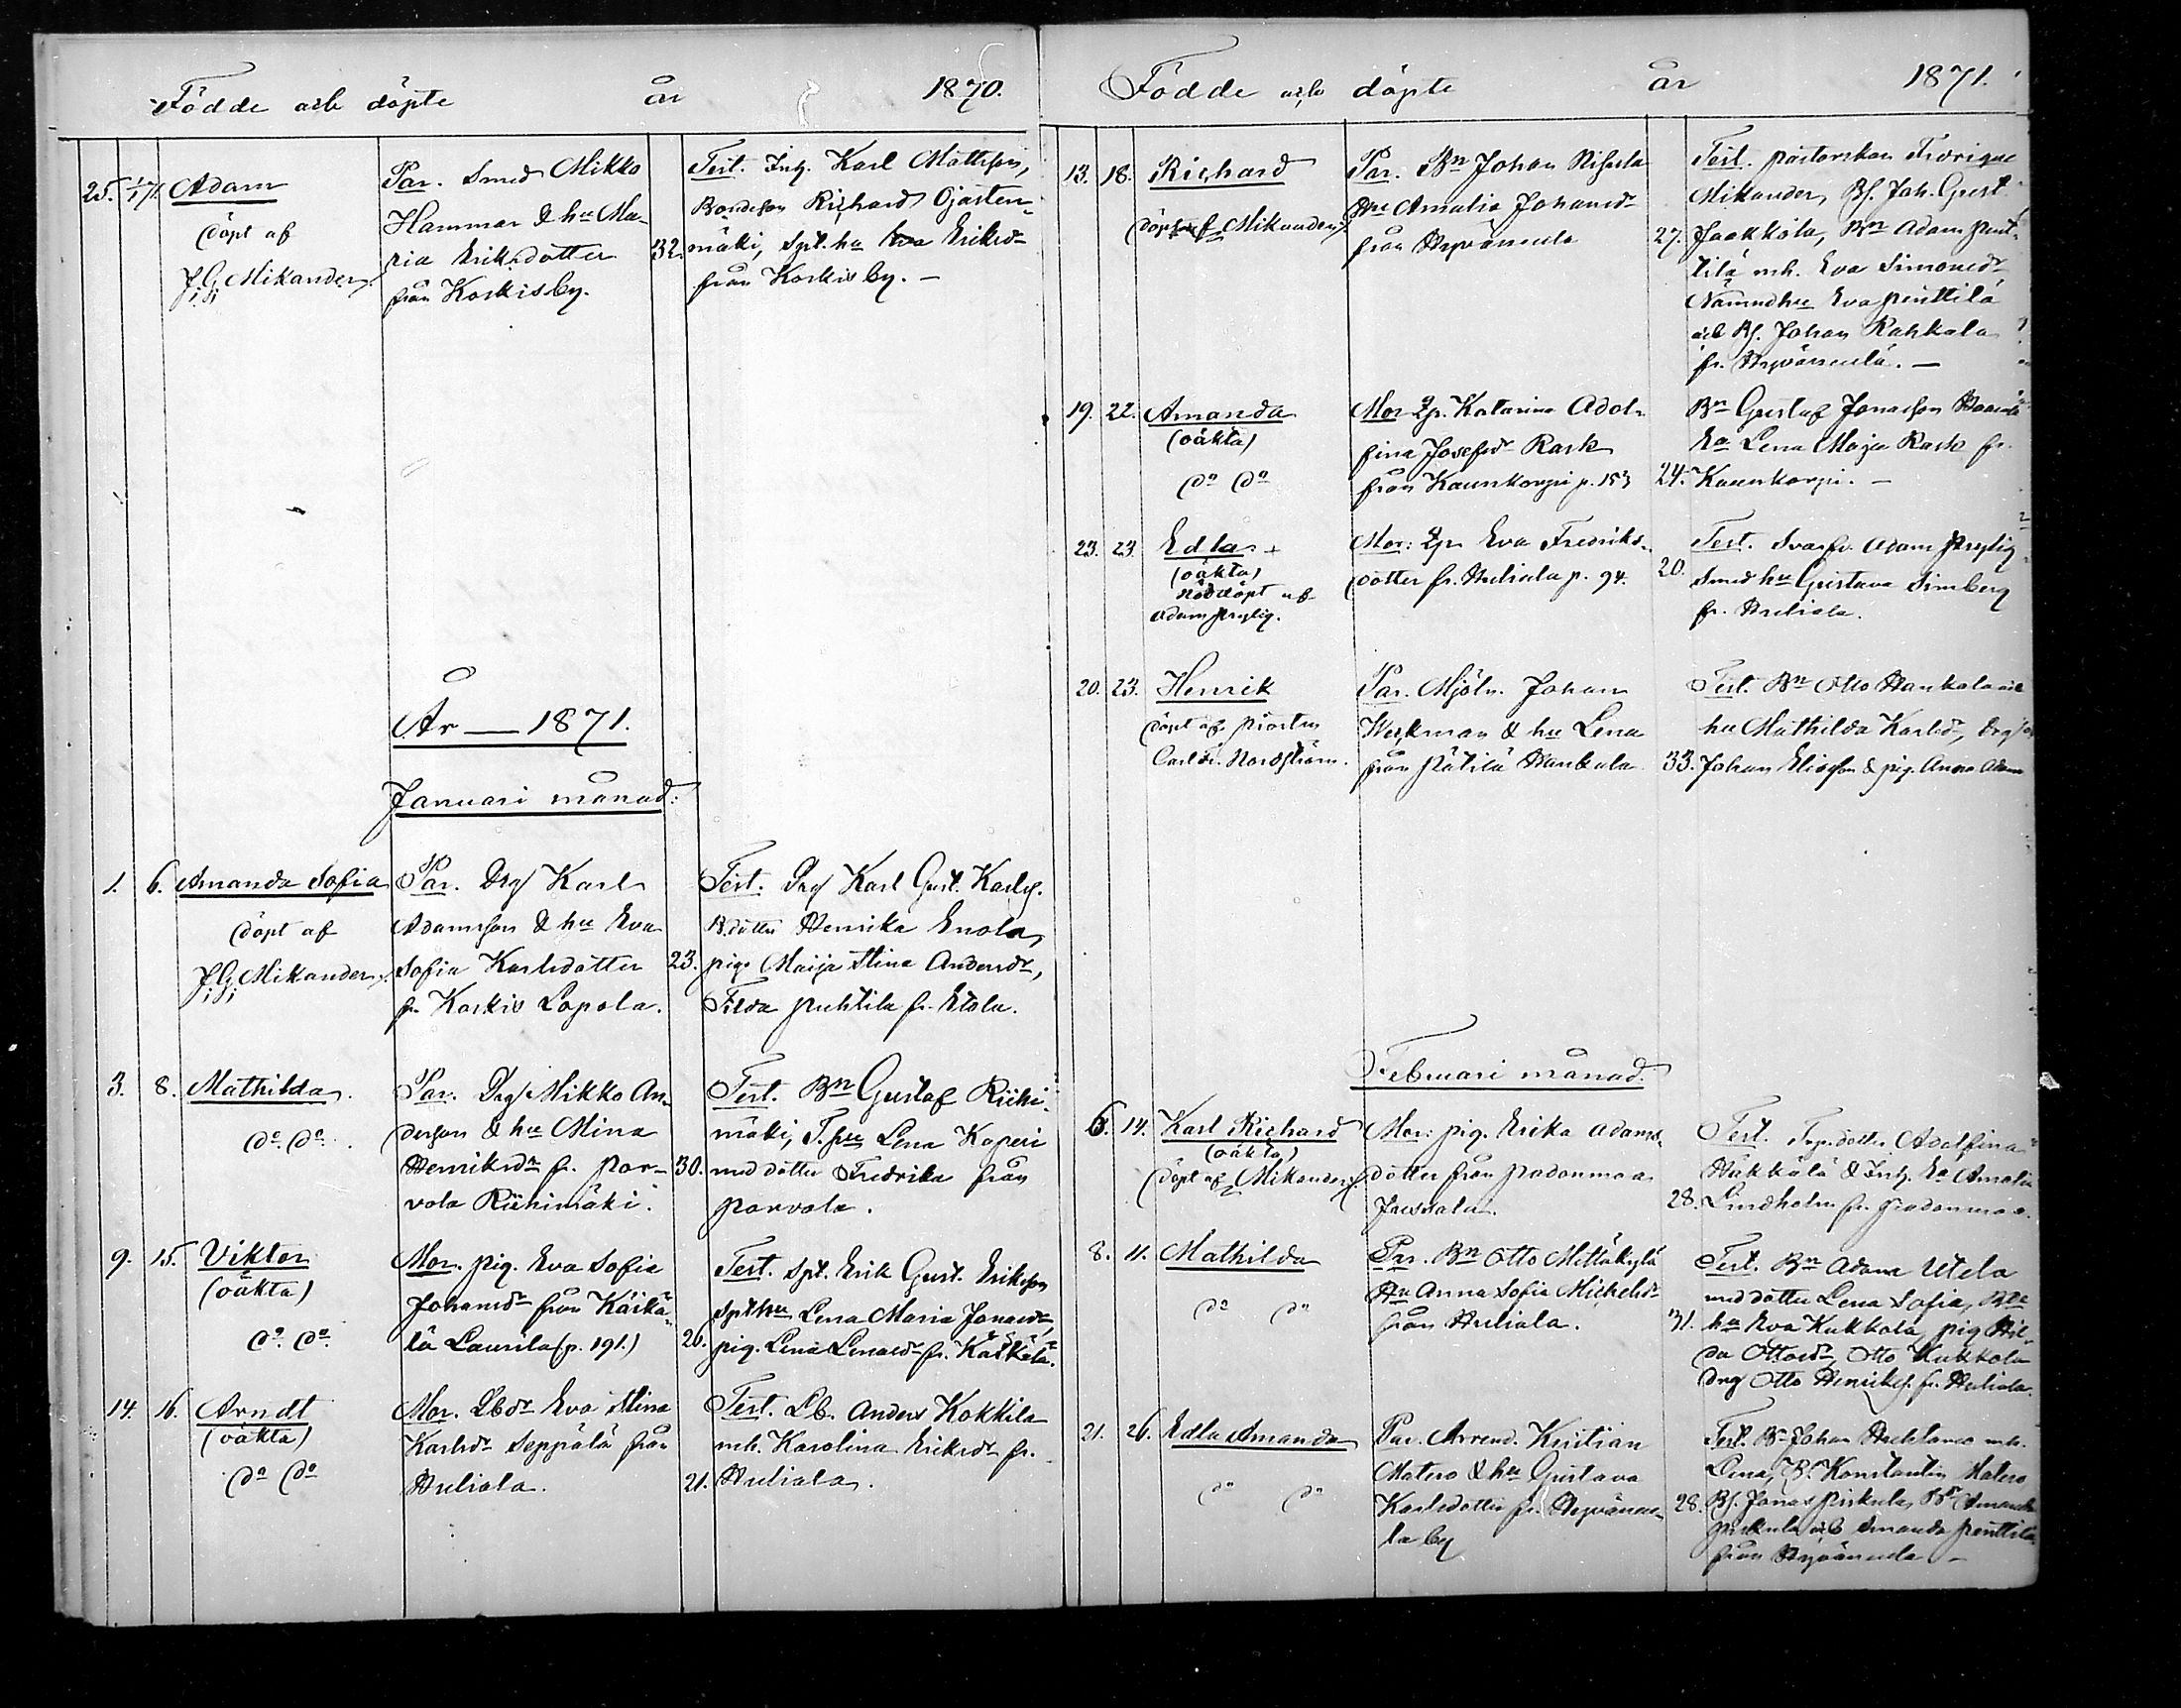 Födde och döpte år 1870.
25. 1/71. Adam
döpt af
J. G. Mikander.
Par. Smed Mikko
Hammar & hu Ma-
ria Eriksdotter
från Koskis by.
32.
Test. Inh. Karl Mattsson,
Bondeson Richard Ojasten-
mäki, spt. hu Eva Eriksdr
från Koskis by. —
År — 1871.
Januari månad:
1. 6. Amanda Sofia
döpt af
J. G. Mikander.
Par. Drg Karl
Adamsson & hu Eva
Sofia Karlsdotter
fr. Koskis Lopola.
23.
Test. Drg Karl Gust. Karlss.
B.dotter Henrika Enola,
piga Maija Stina Andersdr,
Filda Puhtila fr. Etola.
3. 8. Mathilda.
do do.
Par. Drg Mikko An-
dersson & hu Mina
Henriksdr fr. Por-
vola Riihimäki.
30.
Test. Bn Gustaf Riihi-
mäki, T. hu Lena Kaperi
med dotter Fredrika från
Porvola.
9. 15. Viktor
(oäkta)
do do.
Mor. pig. Eva Sofia
Johansdr från Käikä-
lä Laurila (p. 191.)
20.
Test. Spt. Erik Gust. Eriksson
Spt hu Lena Maria Jonasdr,
pig. Lena Lenasdr fr. Käikälä.
14. 16. Arndt
(oäkta)
do do
Mor. Lbdr Eva Stina
Karlsdr Seppälä från
Huliala.
21.
Test. Lb. Anders Kokkila
mh. Karolina Eriksdr fr.
Huliala.
Födde och döpte år 1871.
13. 18. Richard
döpt af Mikander.
Par. Bn Johan
Hu Amalia Johansdr
från Hyväneula
27.
Test. Pastorskan Fredrique
Mikander, Bs. Joh. Gust
Jaakkola, Bn Adam Pent-
tilä mh. Eva Simonsdr
Nämndhu Eva Penttilä
och Bs. Johan Rahkala
fr. Hyväneula. —
19. 22. Amanda
(oäkta)
do do
Mor Qp. Katarina Adol-
fina Josefsdr Rask
från Kaunkorpi p. 153
24.
Bn Gustaf Jonasson
Ea Lena Maja Rask fr.
Kaunkorpi. —
23. 23. Edla +
(oäkta)
nöddöpt af
Adam Frylig.
Mor: Qp. Eva Fredriks-
dotter fr. Huliala p. 94.
20.
Test. Svarfv. Adam Frylig
Smed hu Gustava Simberg
fr. Huliala.
20. 23. Henrik
döpt af Prosten
Carl Nordström.
Par. Mjöln. Johan
Werkman & hu Lena
från Pätilä Hankala
33.
Test. Bn Otto Hankala och
hu Mathilda Karlsdr, Drg
Johan Eliasson & pig. Anna Adam
Februari månad.
6. 14. Karl Richard
(oäkta)
döpt af Mikander.
Mor: pig. Erika Adams-
dotter från Padonmaa
Jussila.
28.
Test. Torp.dotter Adolfina
Häkkälä & Inh. Ea Amalia
Lindholm fr. Padonmaa.
8. 11. Mathilda
do do
Par. Bn Otto Mettäkylä
Hu Anna Sofia Michelsdr
från Huliala.
31.
Test. Bn Adam Utela
med dotter Lena Sofia, Bde
hu Eva Kukkola, pig Hil-
da Ottosdr, Otto Kukkola
drg Otto Henrikss. fr. Huliala.
21. 26. Edla Amanda
do do
Par. Arrend. Kristian
Matero & hu Gustava
Karlsdotter fr. Hyväneu-
la by
28.
Test. Bn Johan mh.
Lena, Bs. Konstantin Matero
Bs. Jonas Pirkula, Bdr Amanda
Pirkula och Amanda Penttilä
från Hyväneula —